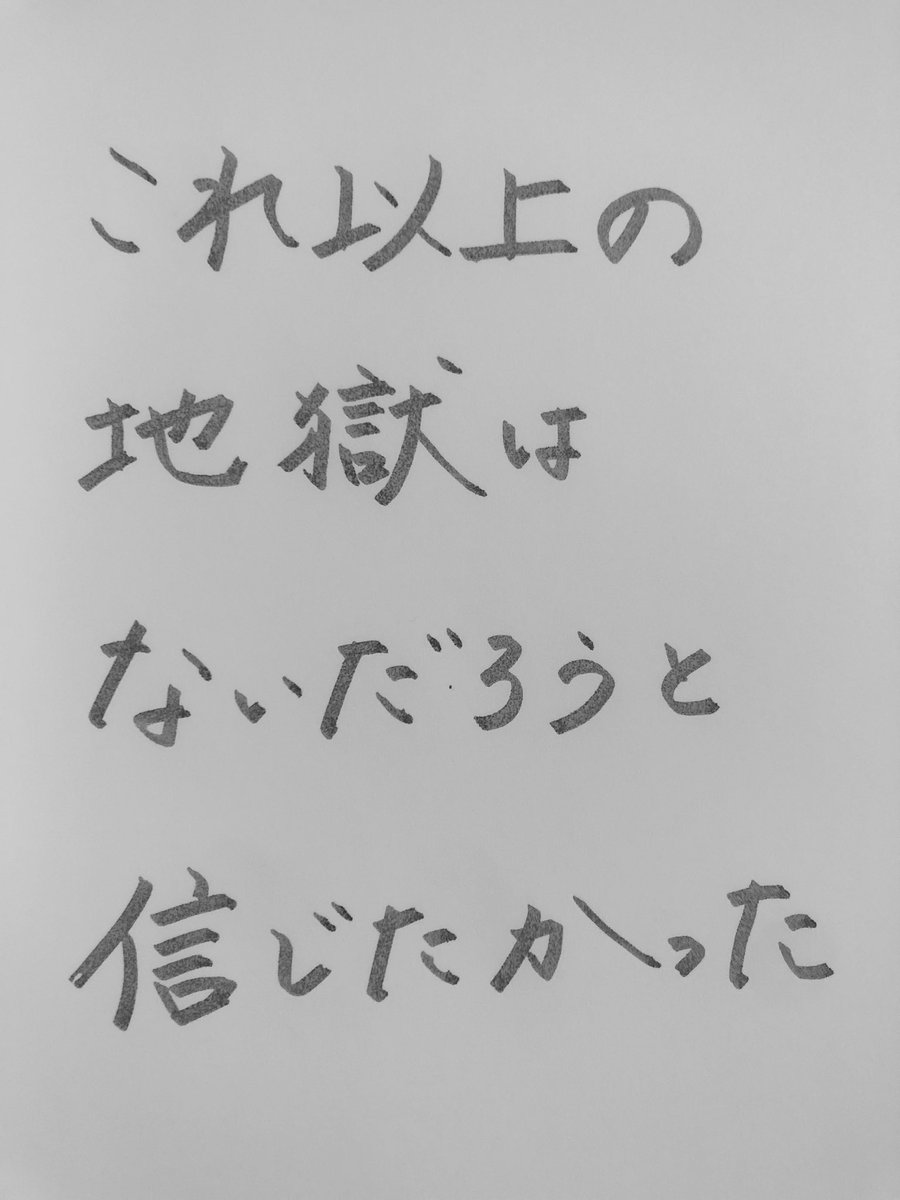 これ以上の
地獄は
ないだろうと
信じたかった